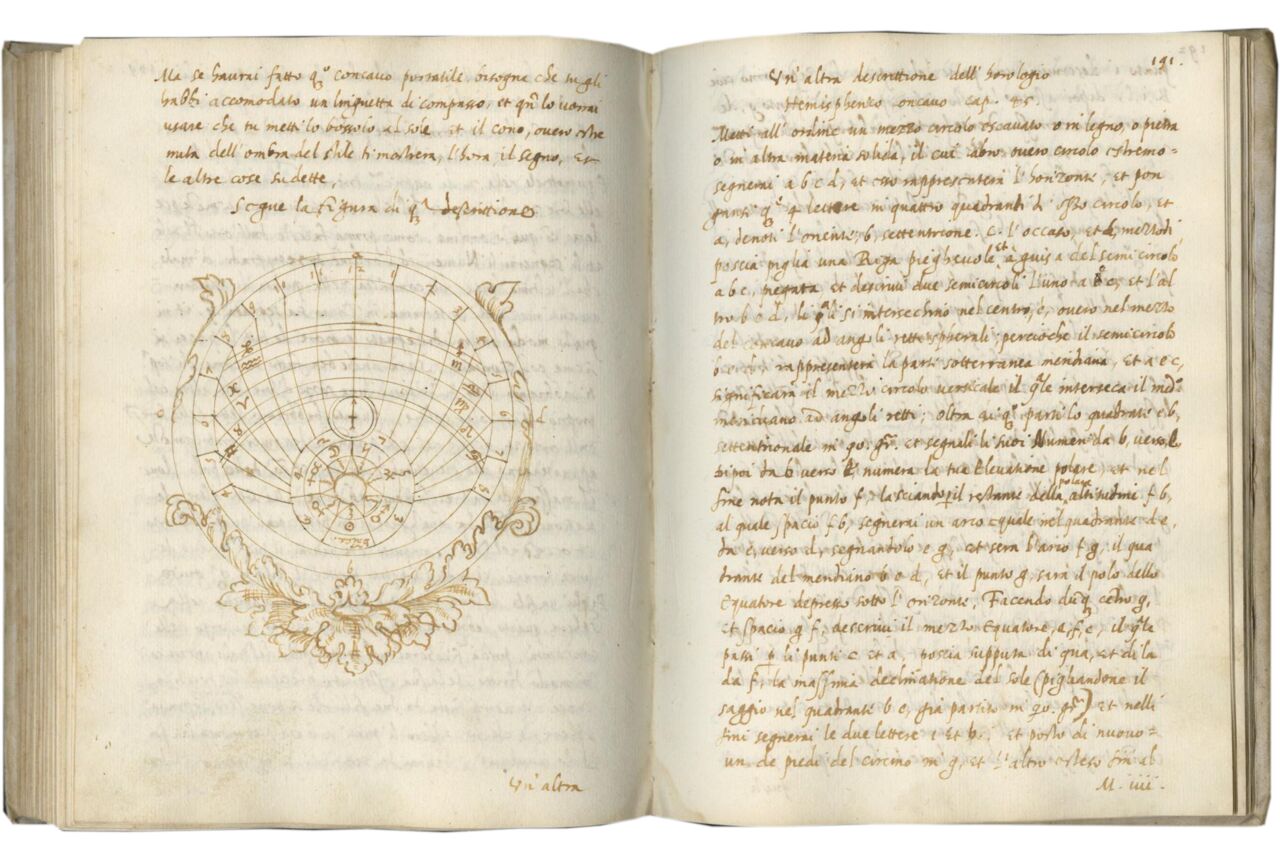 Ma se haurai fatto qo concauo portatile bisogna che tu gli
habbi accomodato un linguetta di compasso, et qn lo uorrai
usare che tu metti lo bossolo al sole et il cono, ouero
dell'ombra del stile ti mostrera, l'hora, il segno, et
le altre cose sudette,
Segue la figura di descrittione
11 12 1
Un'altra
191.
Un'altra descrittione dell'horologio
Hemispherico concauo cap. 45
Metti all'ordine un mezzo circolo escauato o in legno, o pietra
o in altra materia solida, il cui labro ouero circolo estremo=
segnerai a b c d, et esso rappresentera l'horizonte, et pon
gansi qe 4 lettere in quattro quadranti di esso circolo, et
a, denoti l'oriente, b, settentrione. c. l'occaso, et d, mezzodi
poscia piglia una Riga pieghevole, et à guisa del semicircolo
a b c, et descriui due semicircoli l'uno a e c, et l'al
tro b e d, li qli si intersechino nel centro, e, ouero nel mezzo
del concauo ad angoli retti spherali; percioche il semicircolo
b e d, rappresentera la parte sotterranea meridiana, et a e c,
significara il mezzo circolo uerticale il qle interseca il
meridiano ad angoli retti, oltra di qo parti lo quadrante e b,
settentrionale in 90. gr. et segnali li suoi Numeri da b, verso, e
dipoi da b verso e numera la tua Eleuatione polare, et nel
fine nota il punto f, lasciando il restante della polare altitudine f b,
al quale spacio f b, segnerai un arco equale nel quadrante d e,
da e, verso d, segnandolo e g, et sera l'arco f g, il qua
drante del meridiano b e d, et il punto g, sarà il polo dello
Equatore depresso sotto l'orizonte, Facendo duq cetro g,
et spacio g f, descriui il mezzo Equatore, a, f, c, il qle
passi p li punti c et a, poscia supputa di qua, et di la
da f, la massima declinatione del sole (pigliandone il
saggio nel quadrante b e, gia partito in 90. gr.) et nelli
fini segnerai le due lettere i et h, et posto di nuouo=
un de piedi del circino in g, et l'altro esteso fin ab
M. iiii.